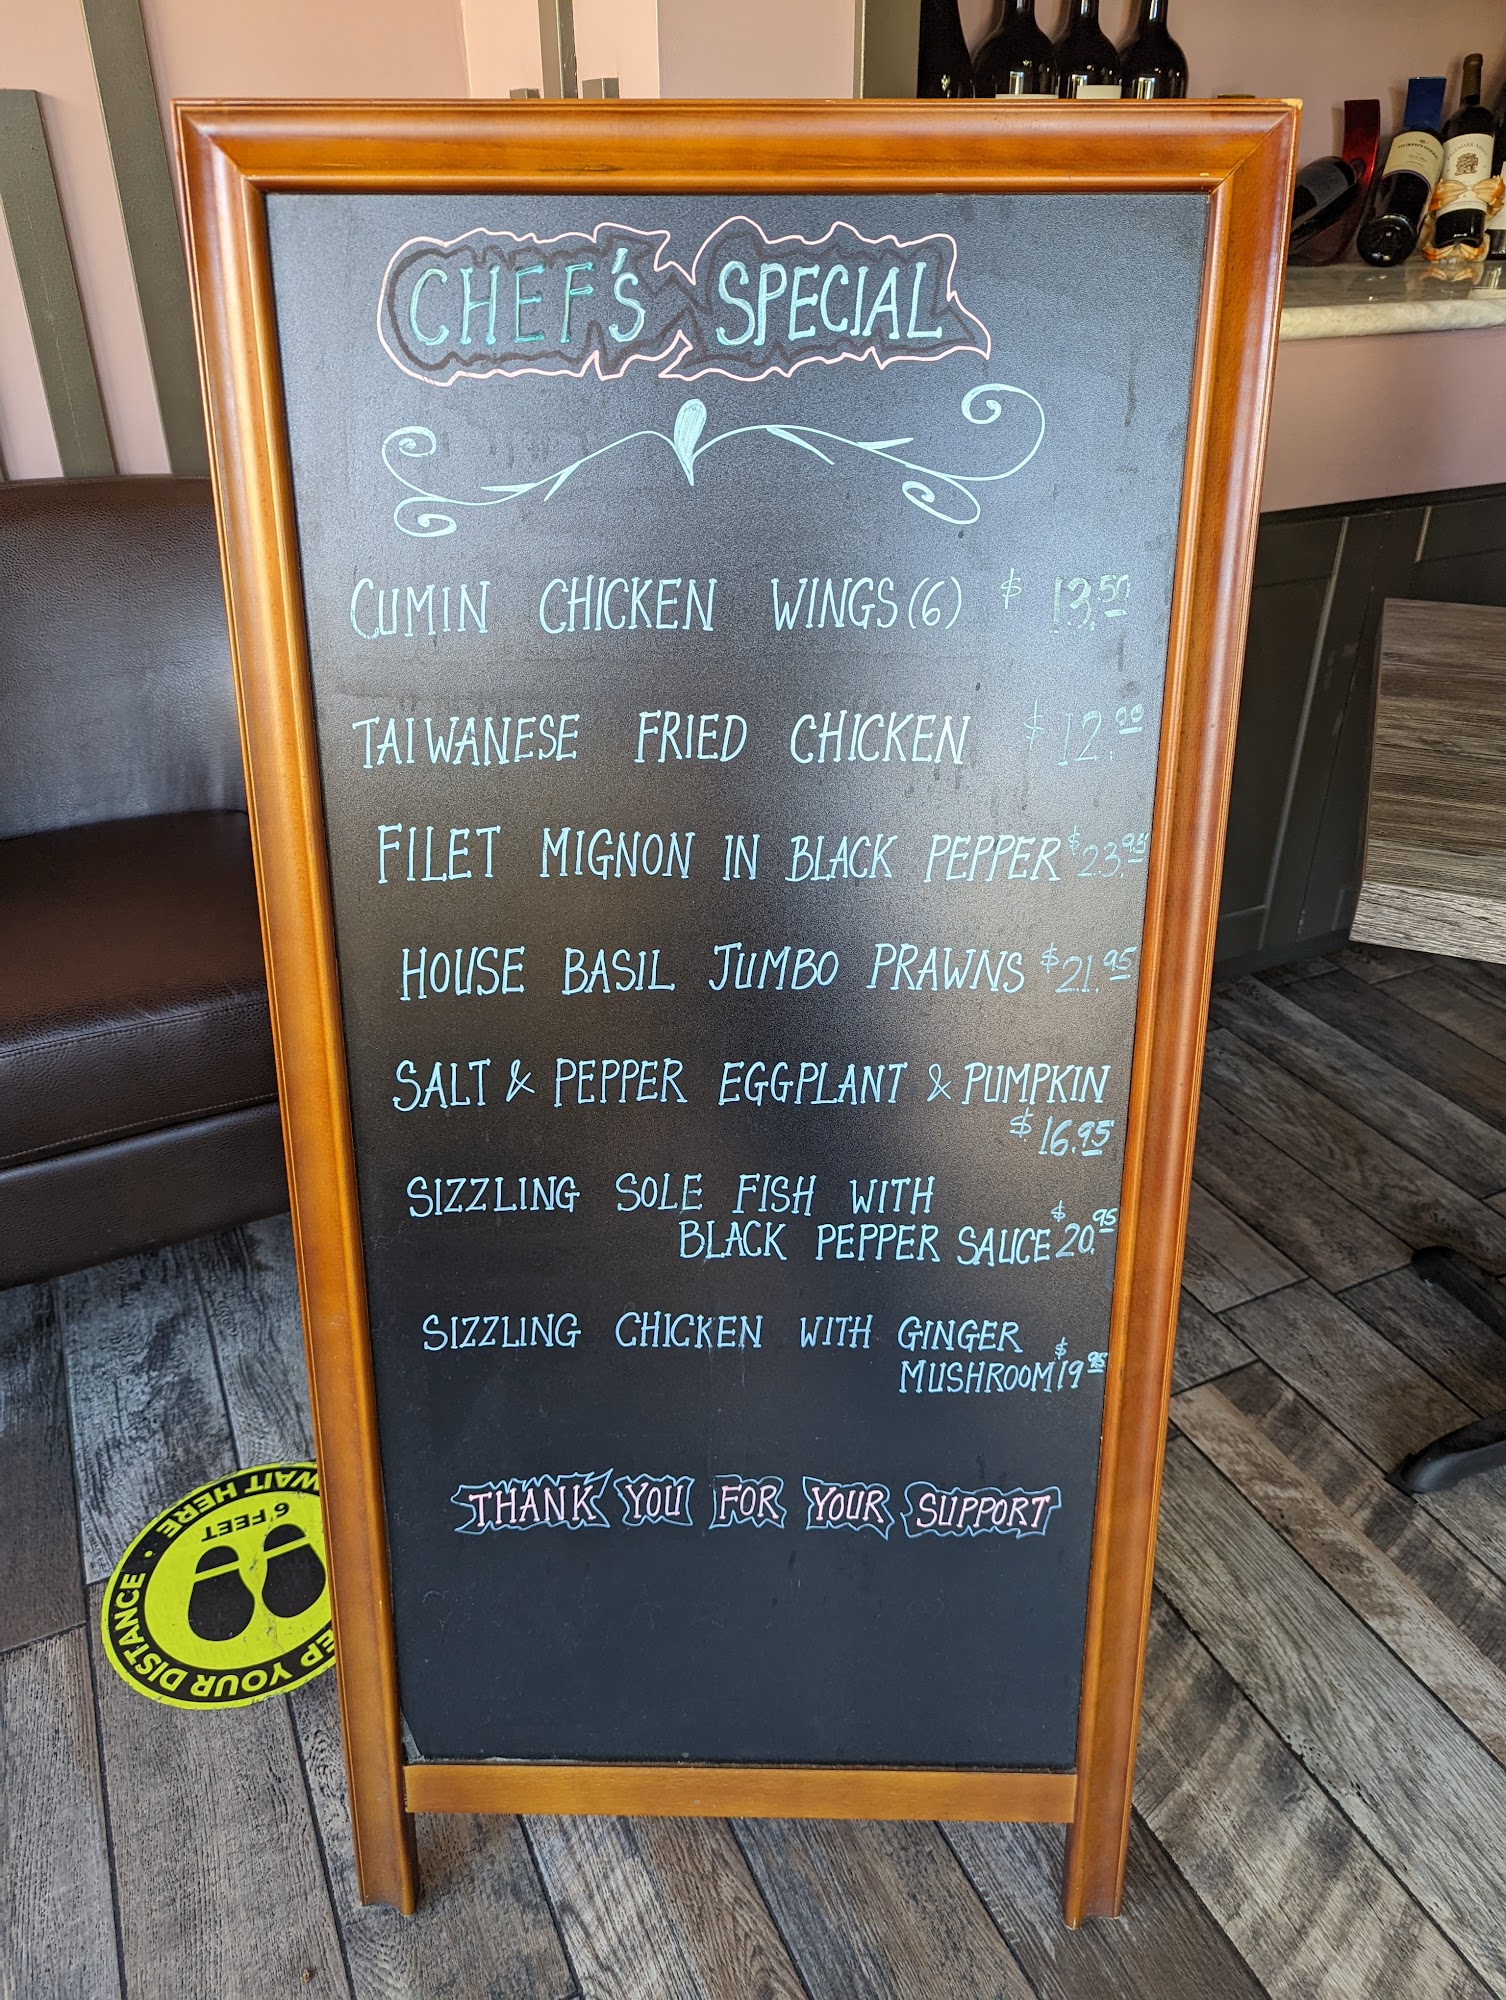 CHEF'S SPECIAL
CUMIN CHICKEN WINGS (6) $ 13.50
TAIWANESE FRIED CHICKEN $ 12.00
FILET MIGNON IN BLACK PEPPER $23.95
HOUSE BASIL JUMBO PRAWNS $21.95
SALT & PEPPER EGGPLANT & PUMPKIN
$16.95
SIZZLING SOLE FISH WITH
BLACK PEPPER SAUCE $20.95
SIZZLING CHICKEN WITH GINGER
MUSHROOM $19.95
THANK YOU FOR YOUR SUPPORT
WAIT HERE
6 FEET
YOUR DISTANCE